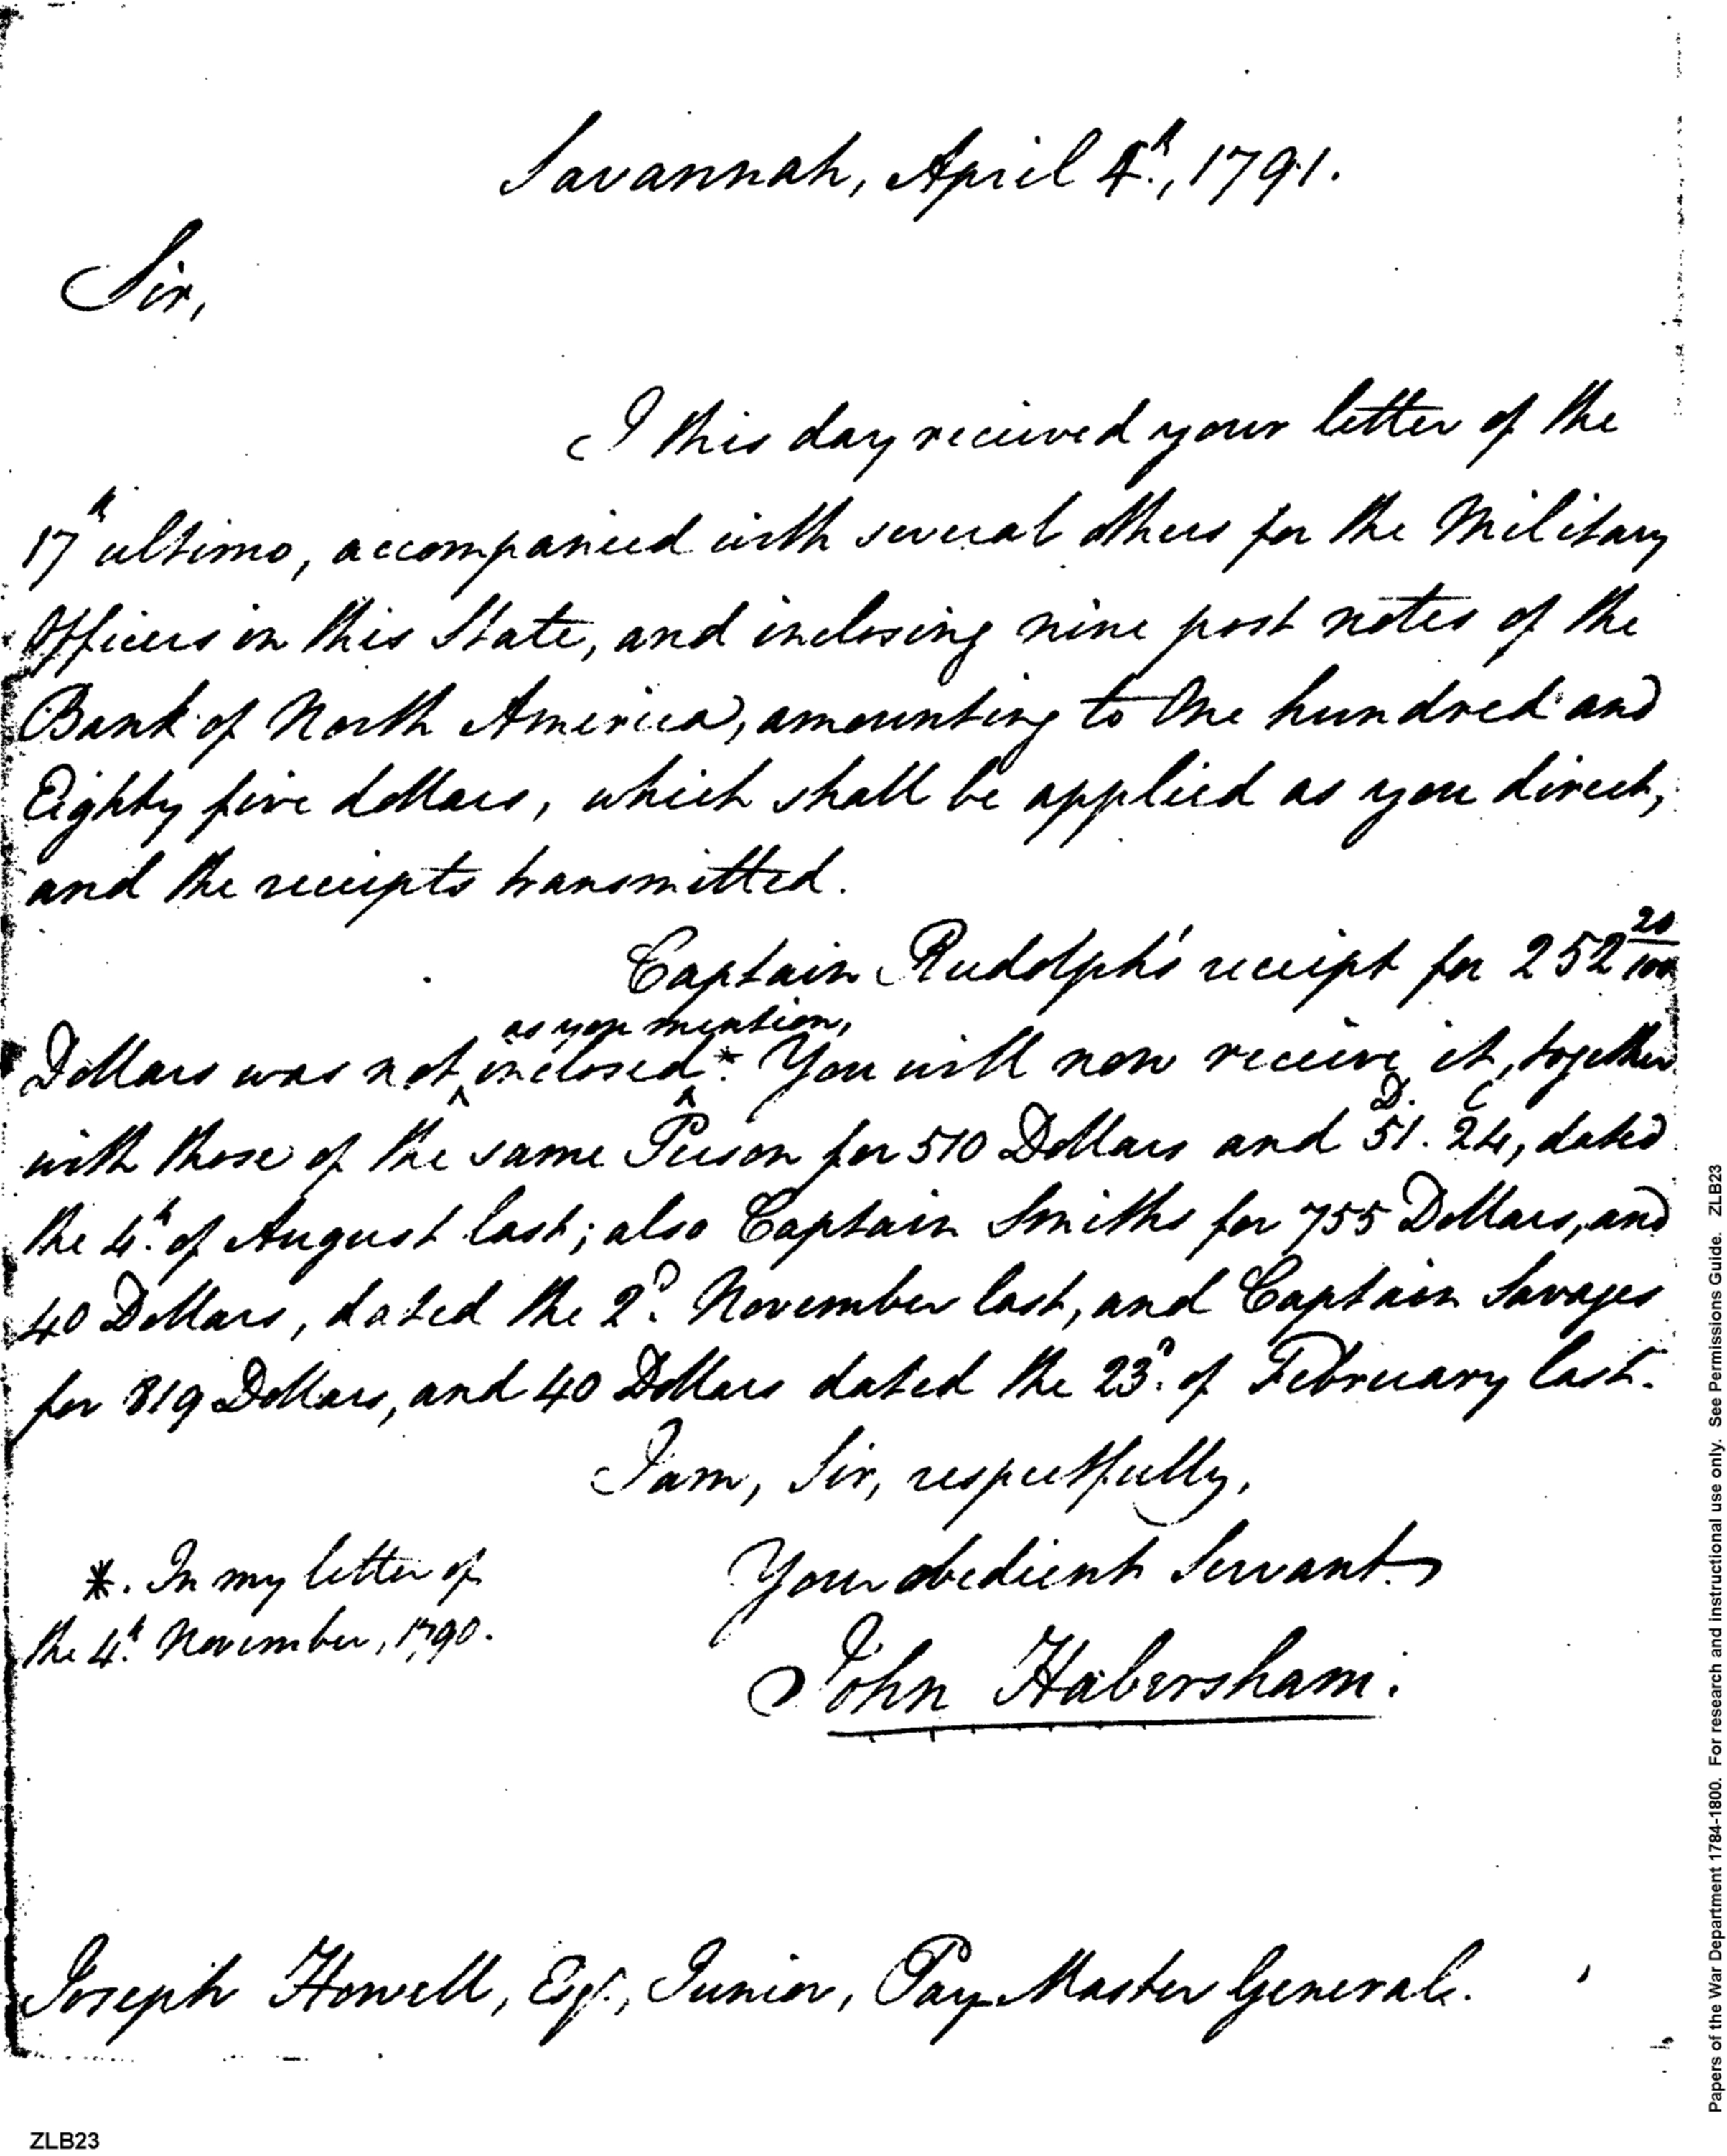 Savannah, April 4th., 1791.
Sir,
I this day received your letter of the
17th ultimo, accompanied with several others for the Military
Officers in this State, and inclosing nine post notes of the
Bank of North America, amounting to One hundred and
Eighty five dollars, which shall be applied as you direct,
and the receipts transmitted.
Captain Rudolph's receipt for 252 20/100
as you mention,
Dollars was not ^ inclosed ^ *. You will now receive it, together
D. C
with those of the same Person for 510 Dollars and 51. 24, dated
the 4th. of August last; also Captain Smiths for 755 Dollars, and
40 Dollars, dated the 2d. November last, and Captain Savages
for 819 Dollars, and 40 Dollars dated the 23d. of February last.
I am, Sir, respectfully,
Your obedient Servant
*. In my letter of
the 4th. November, 1790.
John Habersham.
Joseph Howell, Esqr., Junior, Pay Master General.
ZLB23
Papers of the War Department 1784-1800. For research and instructional use only. See Permissions Guide. ZLB23